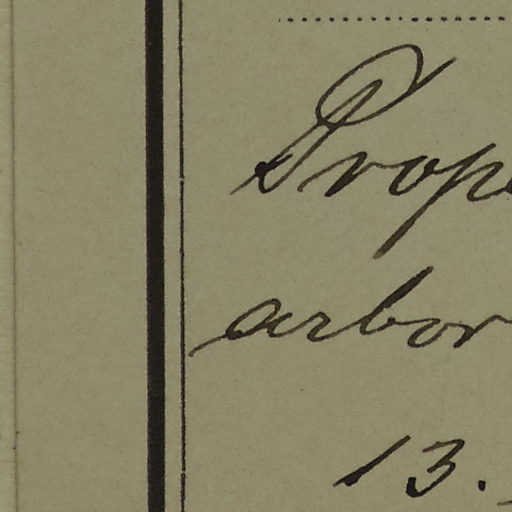 Prope
arbor
13.